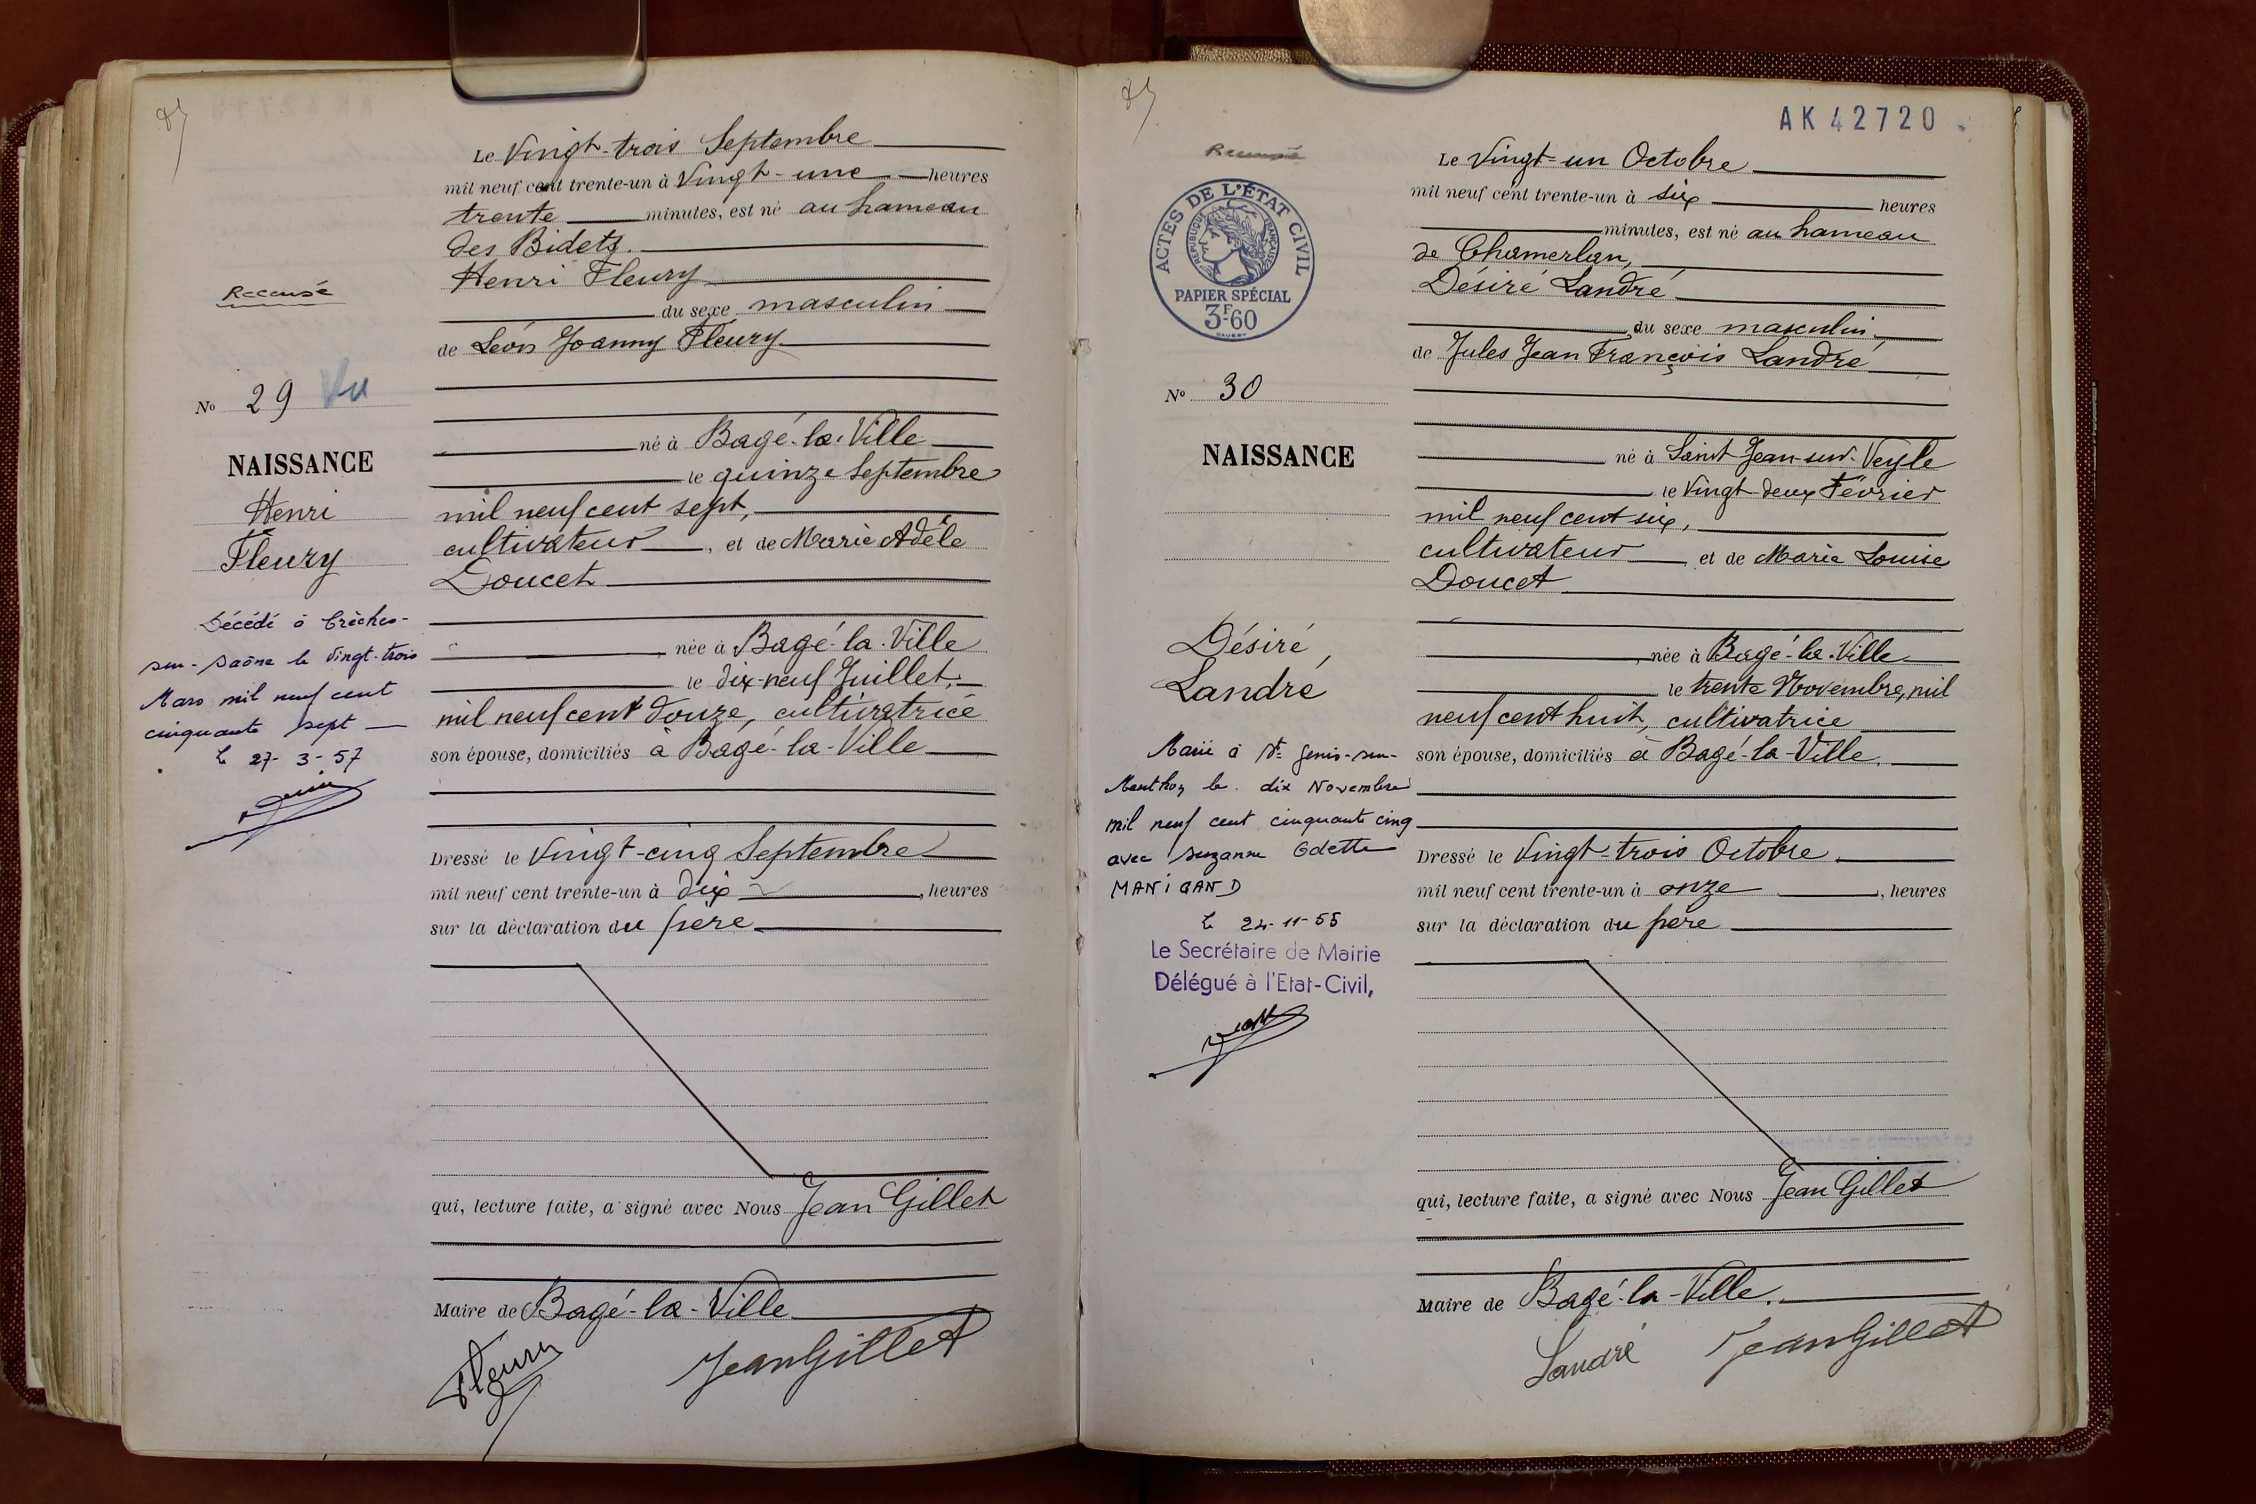 Le Vingt-trois Septembre
mil neuf cent trente-un à Vingt-une heures
trente minutes, est né au hameau
des Bidets.
Henri Fleury
du sexe masculin
de Léon Joanny Fleury
né à Bagé-la-Ville
le quinze Septembre
mil neuf cent sept,
cultivateur, et de Marie Adèle
Doucet
née à Bagé-la-Ville
le dix-neuf Juillet,
mil neuf cent douze, cultivatrice
son épouse, domiciliés à Bagé-la-Ville
Dressé le Vingt-cinq Septembre
mil neuf cent trente-un à dix, heures
sur la déclaration du père
qui, lecture faite, a signé avec Nous Jean Gillet
Maire de Bagé-la-Ville
Fleury
Jean Gillet
Recensé
No 29 Vu
NAISSANCE
Henri
Fleury
Décédé à Crèches-
sur-Saône le Vingt-trois
Mars mil neuf cent
cinquante sept
Le 27-3-57
AK42720
Recensé
ACTES DE L'ÉTAT CIVIL
RÉPUBLIQUE FRANÇAISE
PAPIER SPÉCIAL
3F60
No 30
NAISSANCE
Désiré
Landré
Marié à St Genis-sur-
Menthon le dix Novembre
mil neuf cent cinquante cinq
avec Suzanne Odette
MANIGAND
Le 24-11-55
Le Secrétaire de Mairie
Délégué à l'Etat-Civil,
Le Vingt-un Octobre
mil neuf cent trente-un à six heures
minutes, est né au hameau
de Chamerlan,
Désiré Landré
du sexe masculin
de Jules Jean François Landré
né à Saint Jean-sur-Veyle
le Vingt-deux Février
mil neuf cent six,
cultivateur et de Marie Louise
Doucet
née à Bagé-la-Ville
le trente Novembre, mil
neuf cent huit, cultivatrice
son épouse, domiciliés à Bagé-la-Ville.
Dressé le Vingt-trois Octobre.
mil neuf cent trente-un à onze, heures
sur la déclaration du père
qui, lecture faite, a signé avec Nous Jean Gillet
Maire de Bagé-la-Ville.
Landré Jean Gillet